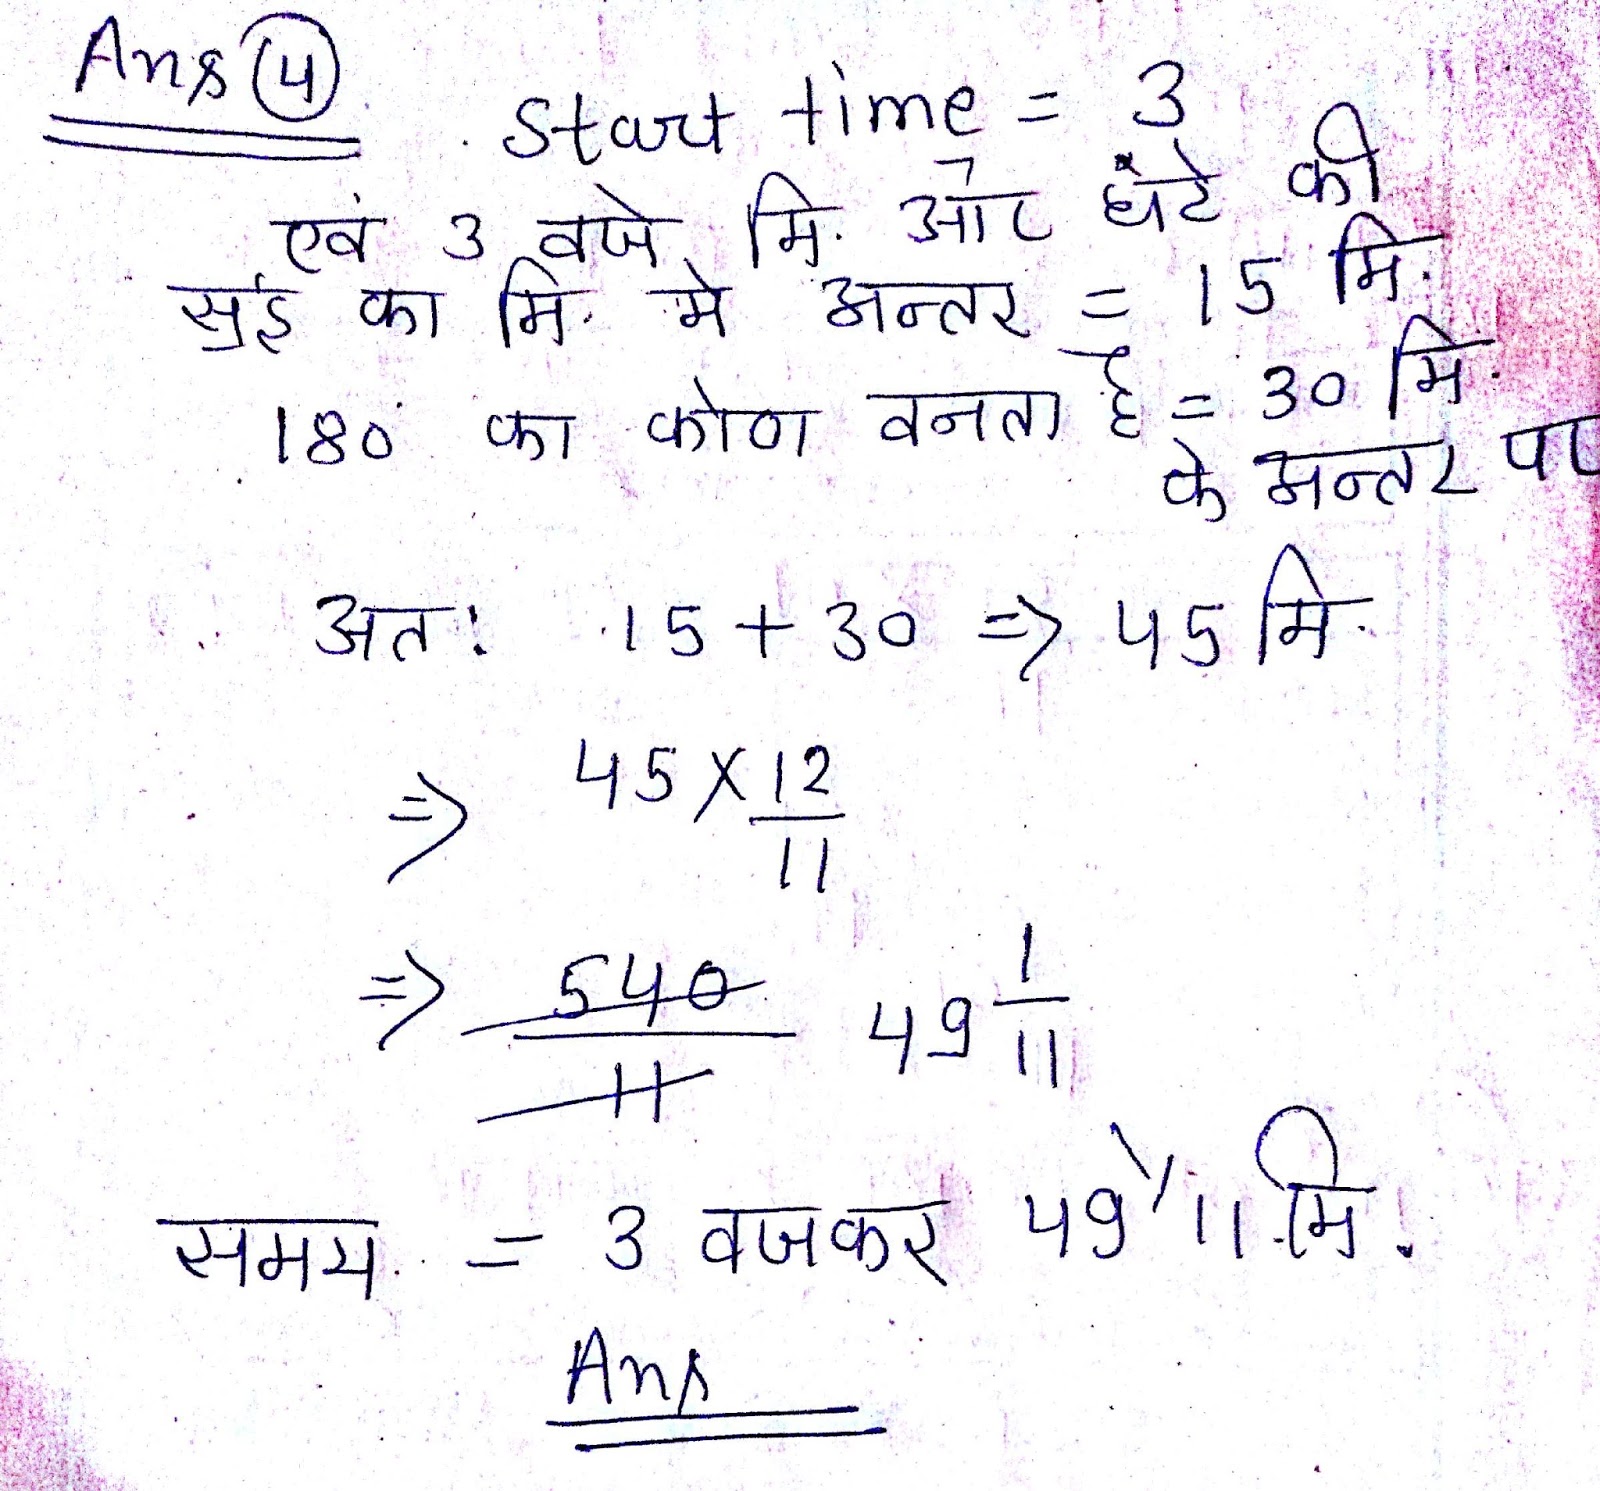 Ans ④
Start time = 3
एवं 3 वजे मि. और घंटे की
सुई का मि. मे अन्तर = 15 मि.
180 का कोण वनता है = 30 मि.
के अन्तर पर
अतः 15 + 30 => 45 मि.
=> 45 × 12/11
=> 540/11 49 1/11
समय = 3 वजकर 49 1/11 मि.
Ans